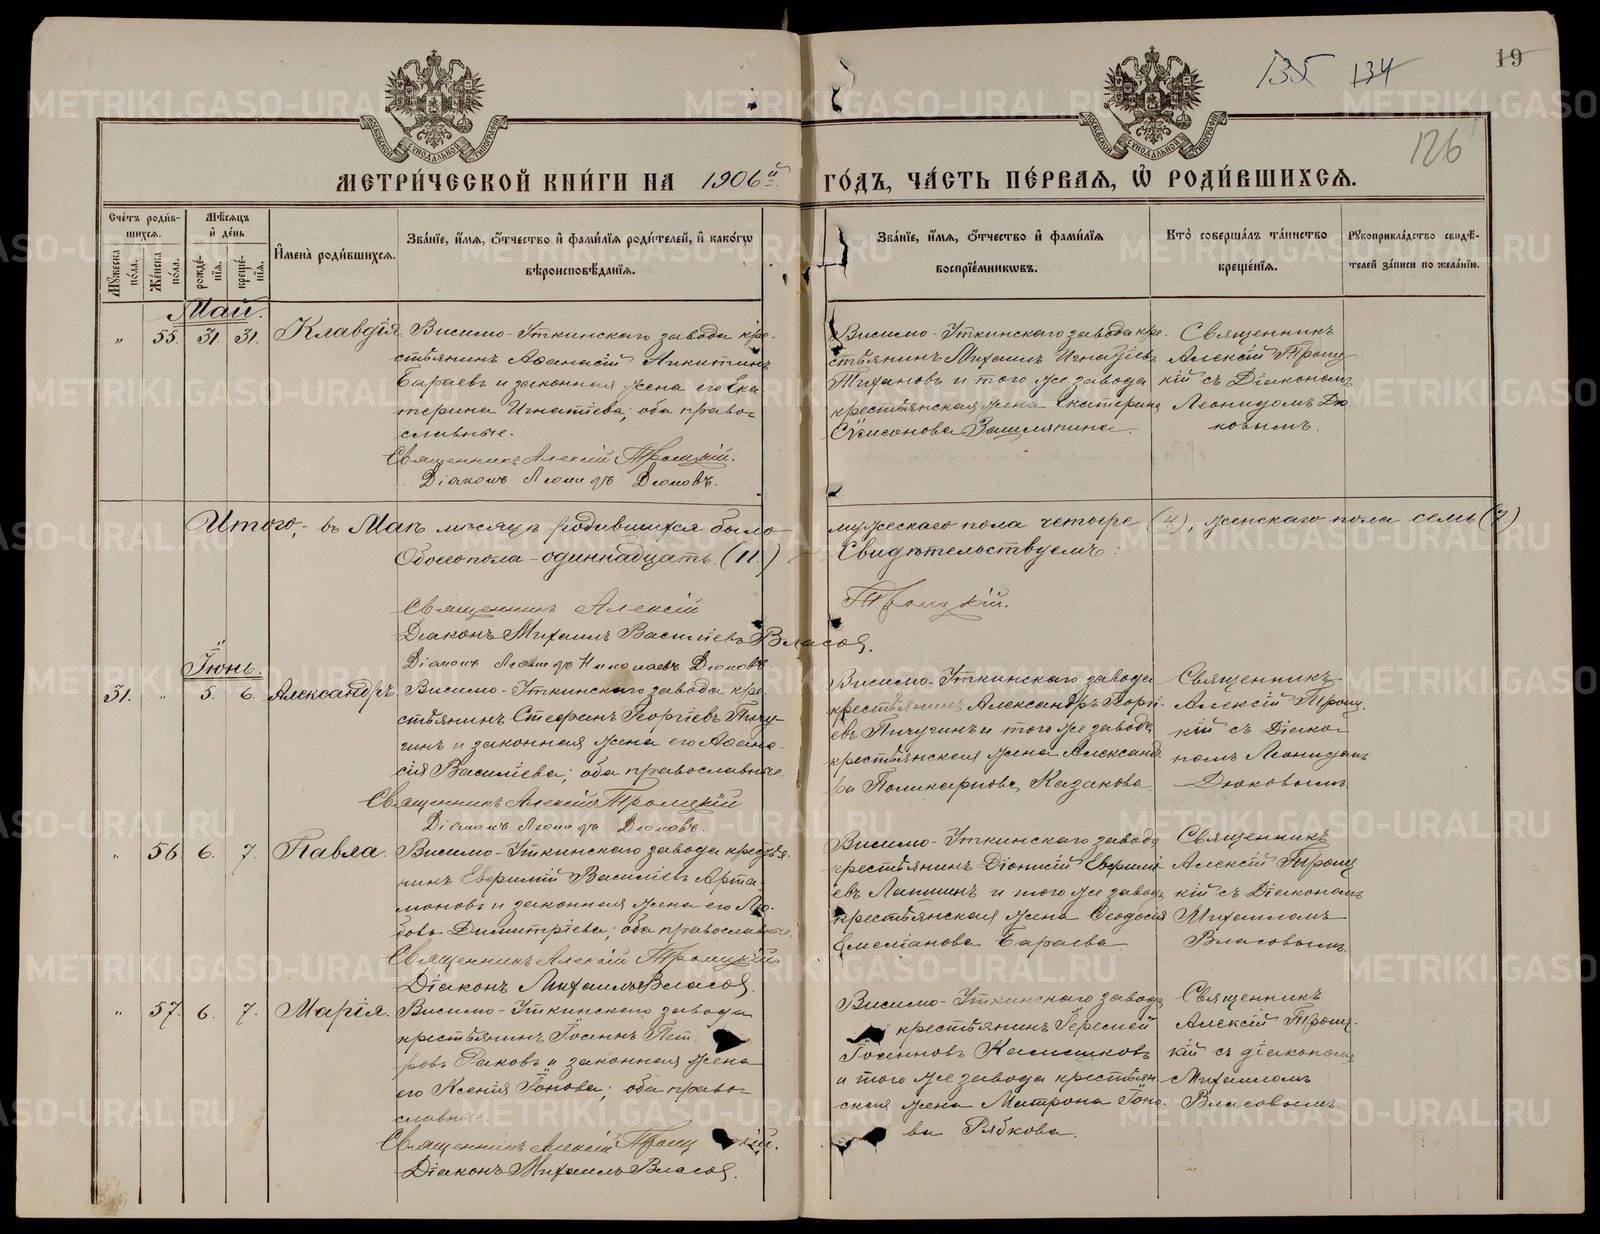 135 134
19
126
МЕТРИ́ЧЕСКОЙ КНИ́ГИ НА 1906й ГО́ДЪ, ЧА́СТЬ ПЕ́РВАЯ, Ѡ РОДИ́ВШИХСЯ.
Сче́тъ роди́в-
шихся.
Мѣ́сяцъ
и де́нь
Му́жеска по́ла.
Же́нска по́ла.
рожде́-
нія.
креще́-
нія.
Имена̀ роди́вшихся.
Зва́ніе, и́мя, о́тчество и фами́лія роди́телей, и како́гѡ
вѣроисповѣ́данія.
Зва́ніе, и́мя, о́тчество и фами́лія
воспріе́мникѡвъ.
Кто̀ соверша́лъ та́инство
креще́нія.
Рукоприкла́дство свидѣ́-
телей за́писи по жела́нію.
Май.
" 55. 31. 31. Клавдія.
Висимо-Уткинскаго завода кре-
стьянинъ Аѳанасій Никитинъ
Бараевъ и законная жена его Ека
терина Игнатіева; оба право-
славные.
Священникъ Алексій Троицкій.
Діаконъ Леонидъ Дюковъ.
Висимо-Уткинскаго завода кре-
стьянинъ Михаилъ Игнатіевъ
Тихановъ и того же завода
крестьянская жена Екатерина
Зашляпина
Священникъ
Алексій Троиц
кій съ Діакономъ
Леонидомъ Дю
ковымъ.
Итого,- въ Маѣ мѣсяцѣ родившихся было мужескаго пола четыре (4), женскаго пола семь (7)
Обоего пола - одиннадцать. (11.) Свидѣтельствуемъ:
Священникъ Алексій Троицкій.
Діаконъ Михаилъ Василіевъ Власовъ.
Діаконъ Леонидъ Николаевъ Дюковъ.
Іюнь.
31. " 5. 6. Александръ.
Висимо-Уткинскаго завода кре-
стьянинъ Стефанъ Георгіевъ Пичу-
гинъ и законная жена его Аѳана-
сія Василіева; оба православные.
Священникъ Алексій Троицкій
Діаконъ Леонидъ Дюковъ.
Висимо-Уткинскаго завода
крестьянинъ Александръ Георгі-
евъ Пичугинъ и того же завода
крестьянская жена Александ
ра Поликарпова Казакова
Священникъ
Алексій Троиц.
кій съ Діако-
номъ Леонидомъ
Дюковымъ.
" 56. 6. 7. Павла.
Висимо-Уткинскаго завода крестья-
нинъ Евфимій Василіевъ Арта-
моновъ и законная жена его Лю-
бовь Димитріева; оба православные.
Священникъ Алексій Троицкій.
Діаконъ Михаилъ Власовъ.
Висимо-Уткинскаго завода
крестьянинъ Діонисій Евфимі-
евъ Лапшинъ и того же завода
крестьянская жена Ѳеодосія
Емеліанова Бараева
Священникъ
Алексій Троиц
кій съ Діакономъ
Михаиломъ
Власовымъ.
" 57. 6. 7. Марія.
Висимо-Уткинскаго завода
крестьянинъ Іоаннъ Пет.
ровъ Раковъ и законная жена
его Ксенія Іонова; оба право-
славные.
Священникъ Алексій Троицкій.
Діаконъ Михаилъ Власовъ.
Висимо-Уткинскаго завода
крестьянинъ
Іоанновъ Калашниковъ
и того же завода крестьян
ская жена Матрона Іоно-
ва Рябкова.
Священникъ
Алексій Троиц-
кій съ діакономъ
Михаиломъ
Власовымъ.
METRIKI.GASO-URAL.RU